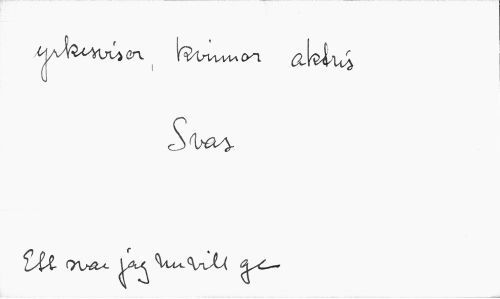 yrkesvisor, kvinnor aktris
Svar
Ett svar jag nu vill ge